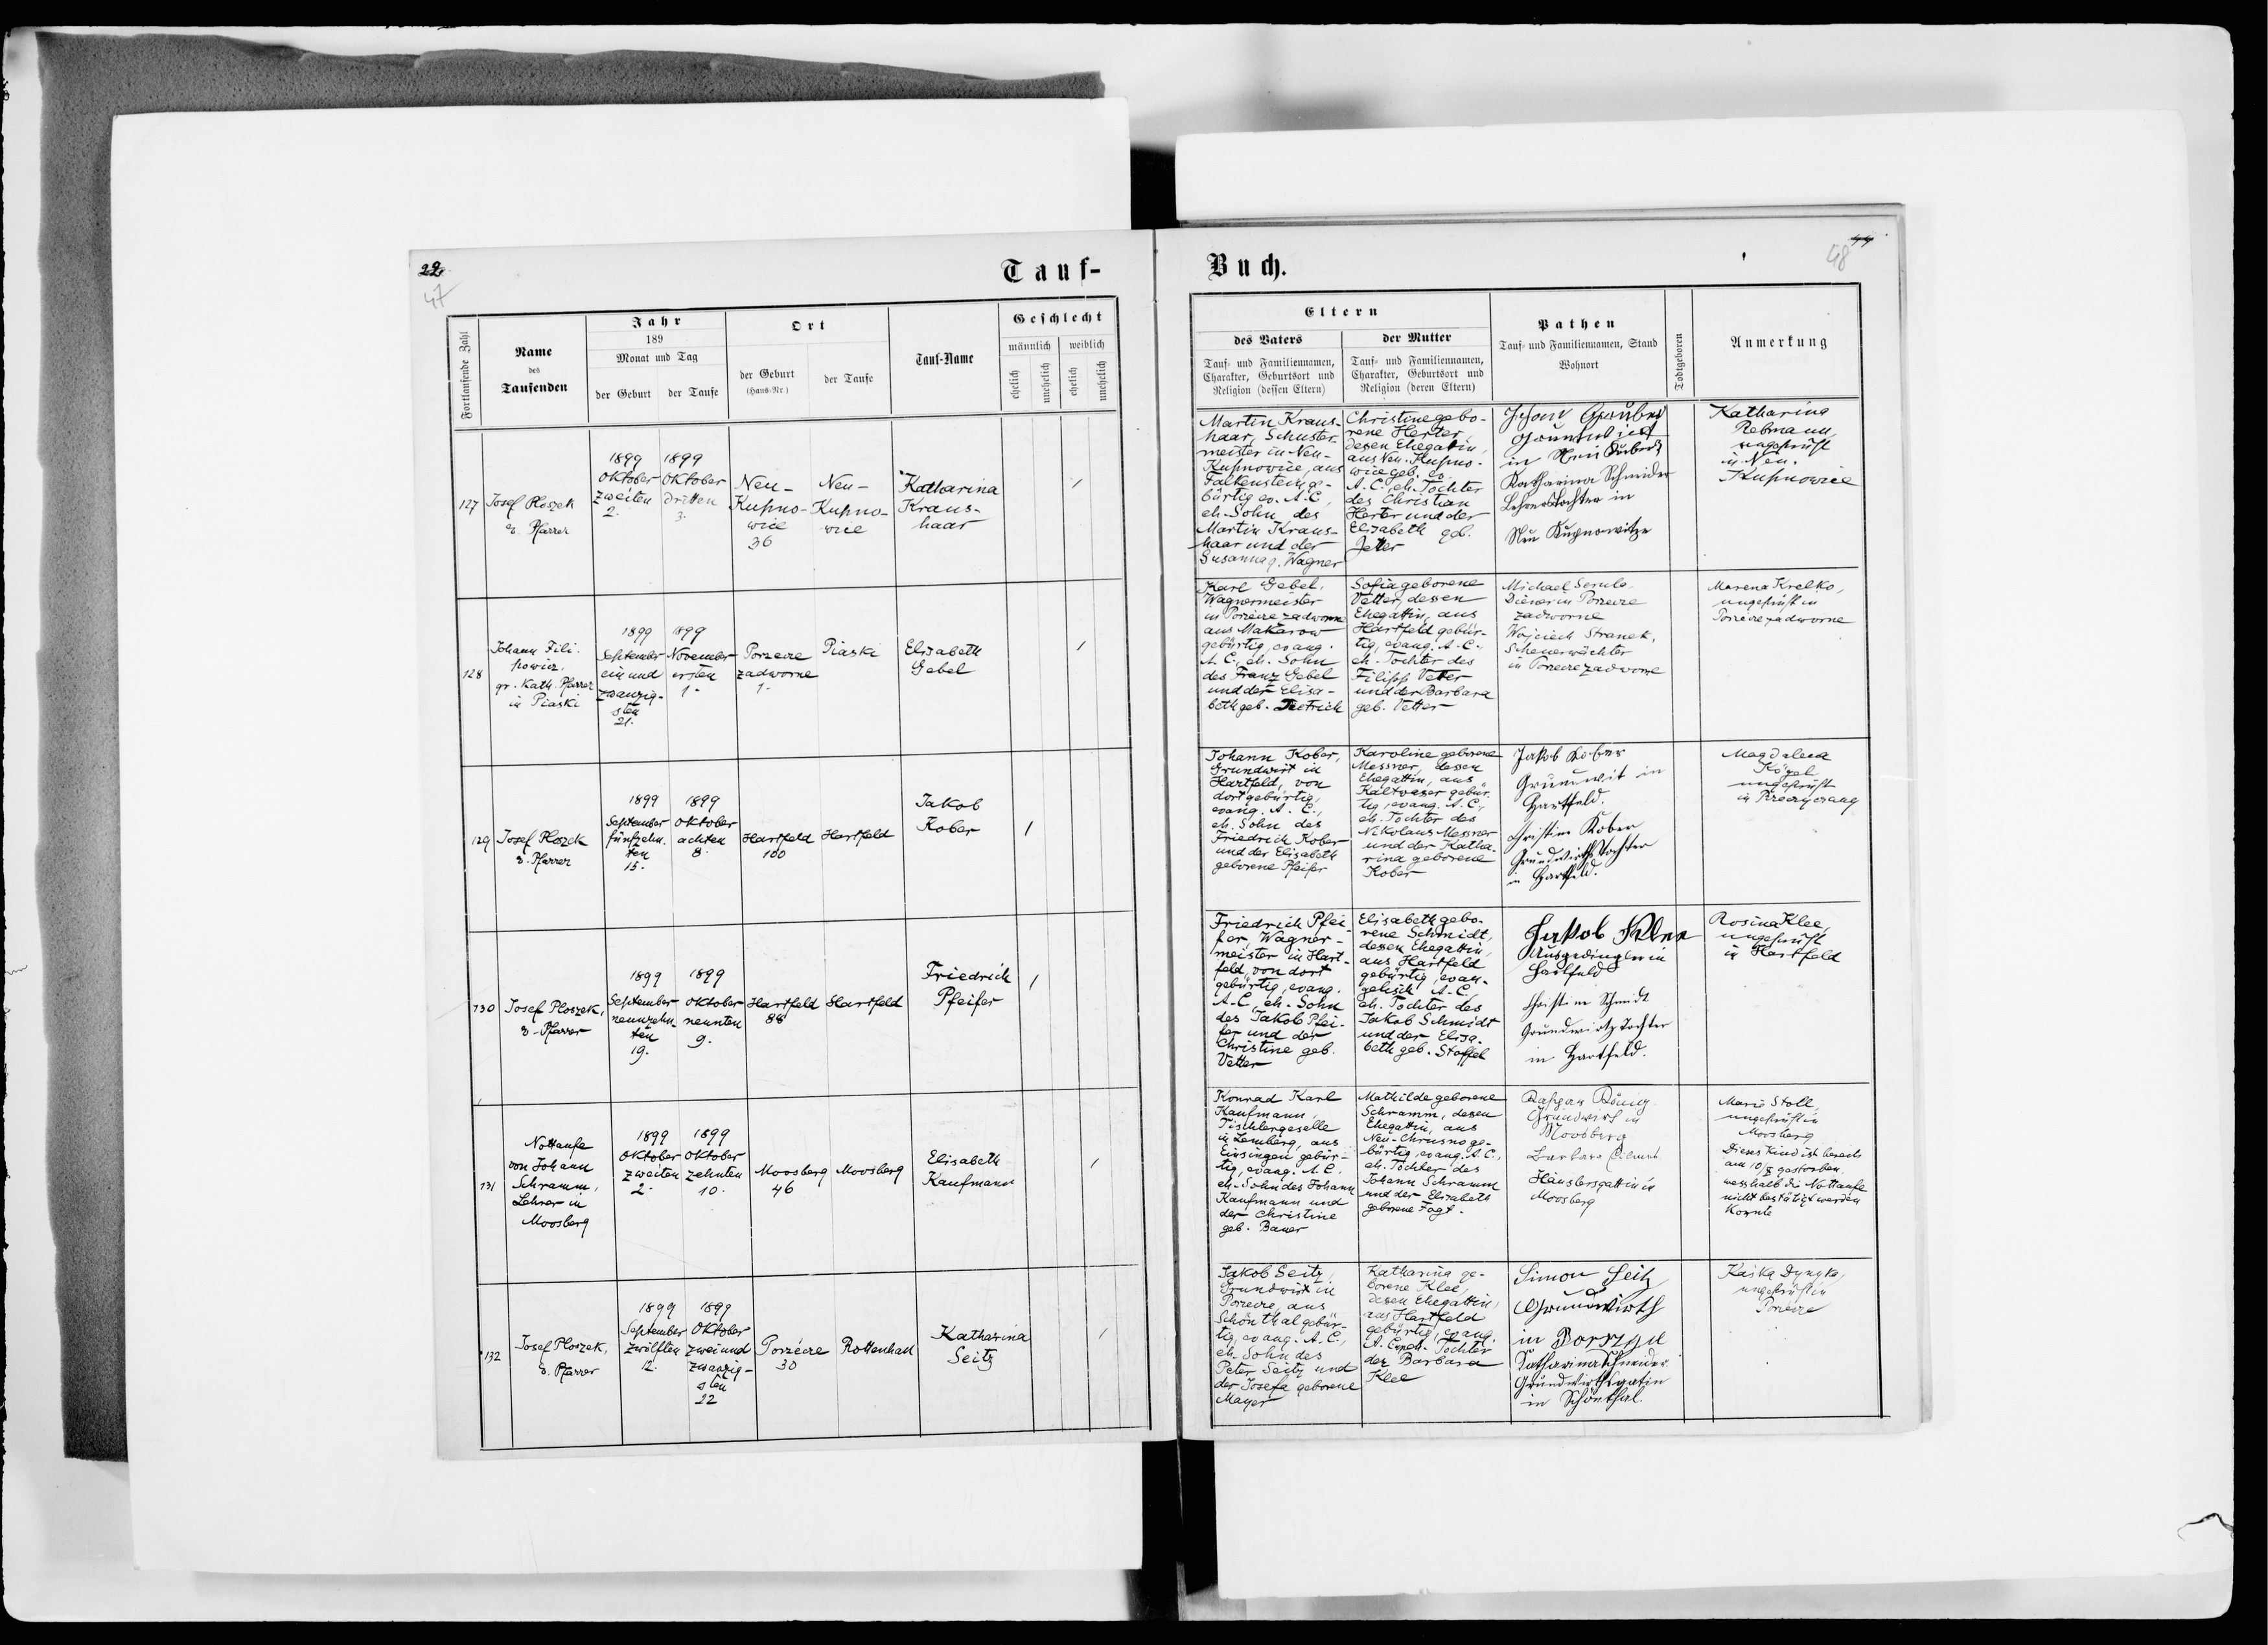 22
47
Tauf-
Fortlaufende Zahl
Name
des
Taufenden
Jahr
189
Monat und Tag
der Geburt
der Taufe
Ort
der Geburt
(Haus-Nr.)
der Taufe
Tauf-Name
Geschlecht
männlich
weiblich
ehelich
unehelich
ehelich
unehelich
127
Josef Ploszek
e. Pfarrer
1899
Oktober
zweiten
2.
1899
Oktober
dritten
3.
Neu-
Kupno-
wice
36
Neu-
Kupno-
wice
Katharina
Kraus-
haar
128
Johann Fili-
powicz,
gr. Kath. Pfarrer
in Piaski
1899
September
ein und
zwanzig-
sten
21.
1899
November
ersten
1.
Porzecze
zadworne
1.
Piaski
Elisabeth
Gebel
129
Josef Ploszek
e. Pfarrer
1899
September
fünfzehn-
ten
15.
1899
Oktober
achten
8.
Hartfeld
100
Hartfeld
Jakob
Kober
130
Josef Ploszek,
e. Pfarrer
1899
September
neunzehn-
ten
19.
1899
Oktober
neunten
9.
Hartfeld
88
Hartfeld
Friedrich
Pfeifer
131
Nottaufe
von Johann
Schramm,
Lehrer in
Moosberg
1899
Oktober
zweiten
2.
1899
Oktober
zehnten
10.
Moosberg
46
Moosberg
Elisabeth
Kaufmann
132
Josef Ploszek,
e. Pfarrer
1899
September
zwölften
12.
1899
Oktober
zwei und
zwanzig-
sten
22
Porzecze
30
Rottenhan
Katharina
Seitz
Buch.
48
Eltern
des Vaters
Tauf- und Familiennamen,
Charakter, Geburtsort und
Religion (dessen Eltern)
der Mutter
Tauf- und Familiennamen,
Charakter, Geburtsort und
Religion (deren Eltern)
Pathen
Tauf- und Familiennamen, Stand
Wohnort
Todtgeboren
Anmerkung
Martin Kraus-
haar, Schuster-
meister in Neu-
Kupnowice, aus
Falkenstein ge-
bürtig ev. A. C.,
eh. Sohn des
Martin Kraus-
haar und der
Susanna g. Wagner
Christine gebo-
rene Herter,
dessen Ehegattin,
aus Neu-Kupno-
wice geb. ev.
A. C., eh. Tochter
des Christian
Herter und der
Elisabeth geb.
Jetter
Katharina Schneider
Lehrerstochter in
Neu Kupnowitze
Katharina
Rebmann,
ungeprüft
in Neu-
Kupnowice
Karl Gebel,
Wagnermeister
in Porzecze zadworne
aus Makarow
gebürtig, evang.
A. C., eh. Sohn
des Franz Gebel
und der Elisa-
beth geb. Dietrich
Sofia geborene
Vetter, dessen
Ehegattin, aus
Hartfeld gebür-
tig, evang. A. C.,
eh. Tochter des
Filipp Vetter
und der Barbara
geb. Vetter
Michael
Diener in Porzecze
zadworne
Wojciech Stranek,
Scheuerwächter
in Porzecze zadworne
Marena Krelko,
ungeprüft in
Porzecze zadworne
Johann Kober,
Grundwirt in
Hartfeld, von
dort gebürtig,
evang. A. C.,
eh. Sohn des
Friedrich Kober
und der Elisabeth
geborene Pfeifer
Karoline geborene
Messner, dessen
Ehegattin, aus
Kaltwaser gebür-
tig, evang. A. C.,
eh. Tochter des
Nikolaus Messner
und der Katha-
rina geborene
Kober
Jakob Kober
Grundwirt in
Hartfeld.
Christine Kober
Grundwirthstochter
in Hartfeld.
Magdalena
Kögel
ungeprüft
in
Friedrich Pfei-
fer, Wagner-
meister in Hart-
feld, von dort
gebürtig, evang.
A. C., eh. Sohn
des Jakob Pfei-
fer und der
Christine geb.
Vetter
Elisabeth gebo-
rene Schmidt,
dessen Ehegattin,
aus Hartfeld
gebürtig, evan-
gelisch A. C.,
eh. Tochter des
Jakob Schmidt
und der Elisa-
beth geb. Stoffel
Jakob Klee
Ausgedingler in
Hartfeld
Christine Schmidt
Grundwirtstochter
in Hartfeld.
Rosina Klee,
ungeprüft
in Hartfeld
Konrad Karl
Kaufmann,
Tischlergeselle
in Lemberg, aus
Einsingen gebür-
tig, evang. A. C.,
eh. Sohn des Johann
Kaufmann und
der Christine
geb. Bauer
Mathilde geborene
Schramm, dessen
Ehegattin, aus
Neu-Chrusno ge-
bürtig, evang. A. C.,
eh. Tochter des
Johann Schramm
und der Elisabeth
geborene Fogt.
Grundwirt in
Moosberg
Barbara
Häuslersgattin in
Moosberg
Marie Stoll,
ungeprüft in
Moosberg
Dieses Kind ist bereits
am 10/X gestorben,
wesshalb die Nottaufe
nicht bestätigt werden
konnte
Jakob Seitz,
Grundwirt in
Porzecze, aus
Schönthal gebür-
tig, evang. A. C.,
eh. Sohn des
Peter Seitz und
der Josefa geborene
Mayer
Katharina ge-
borene Klee,
dessen Ehegattin,
aus Hartfeld
gebürtig, evang.
A. C., Tochter
der Barbara
Klee
Simon Seitz
Grundwirth
in
Katharina Schneider
Grundwirthsgatin
in Schönthal.
Kaska Dynyka,
ungeprüft in
Porzecze